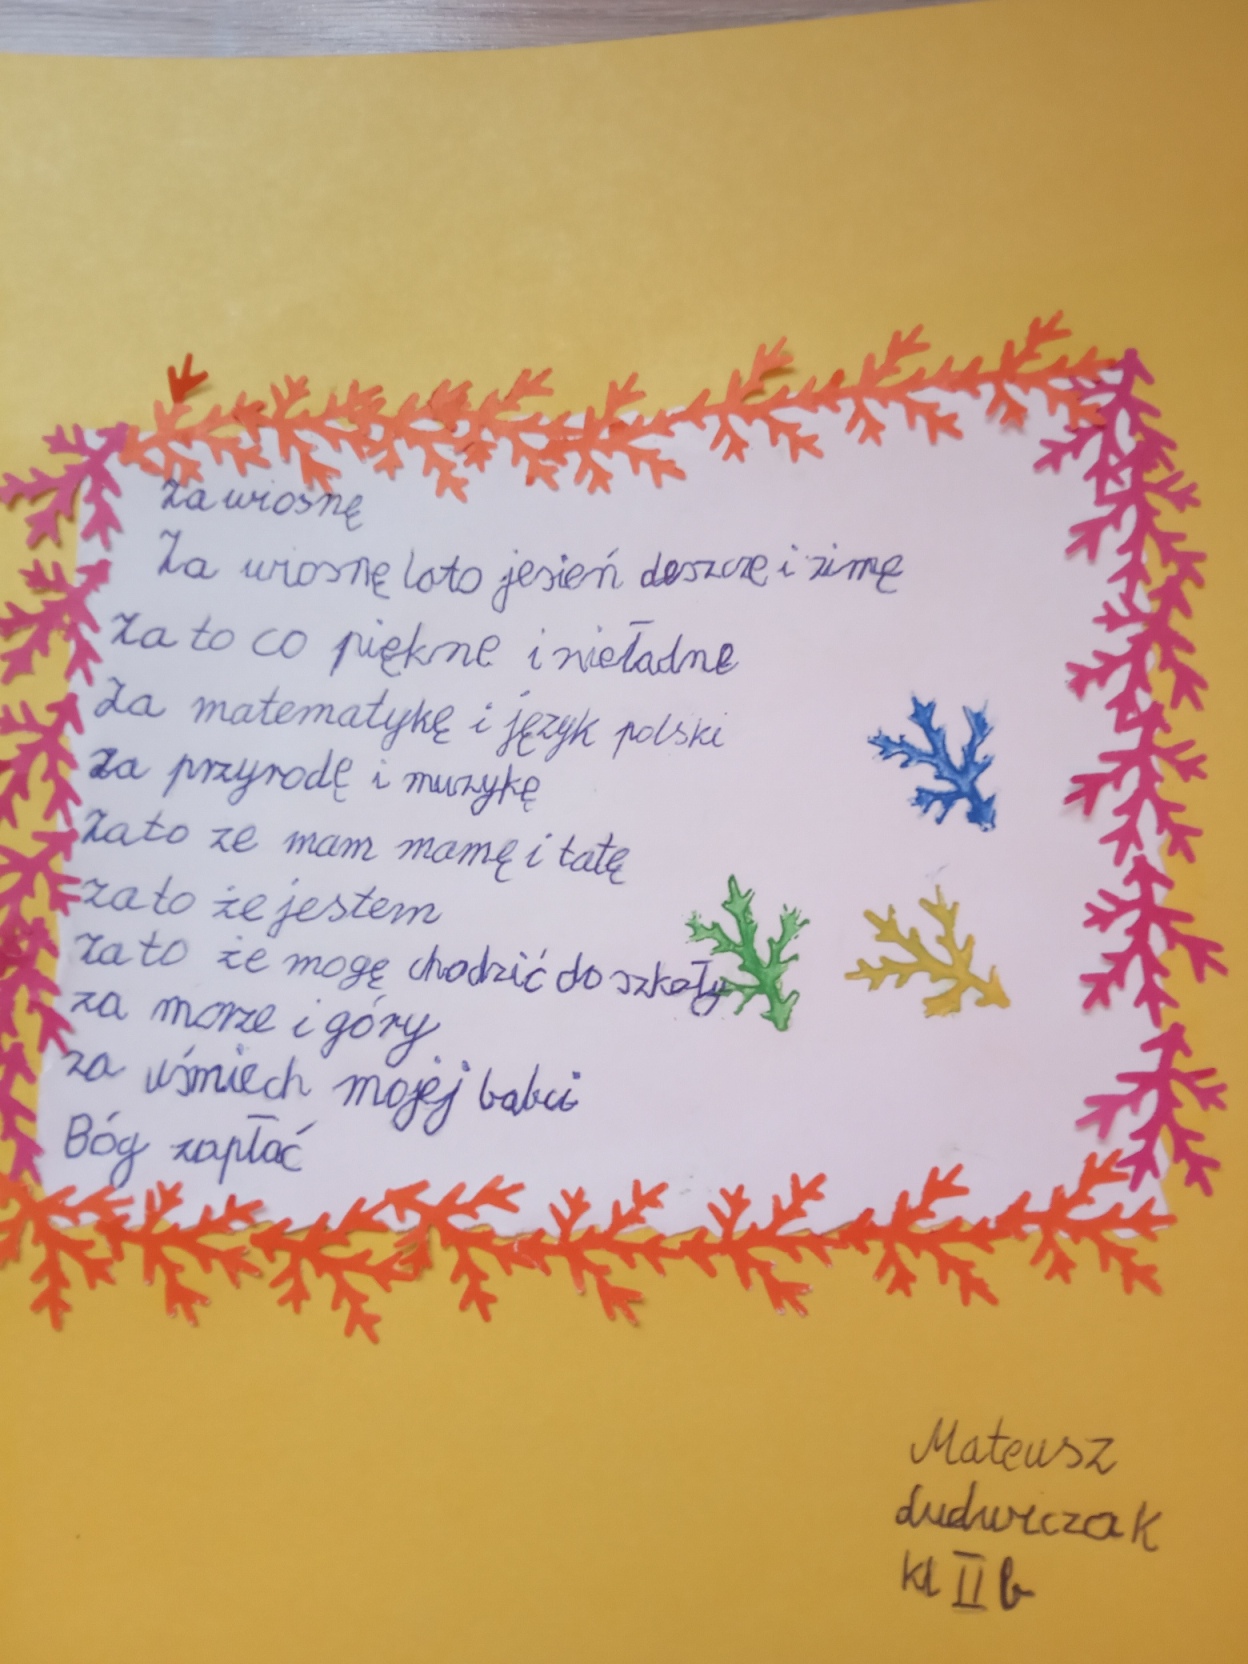 Za wiosnę
Za wiosnę lato jesień deszcze i zimę
Za to co piękne i nieładne
Za matematykę i język polski
Za przyrodę i muzykę
Za to ze mam mamę i tatę
Za to że jestem
Za to że mogę chodzić do szkoły
za morze i góry
za uśmiech mojej babci
Bóg zapłać
Mateusz
Ludwiczak
kl II b